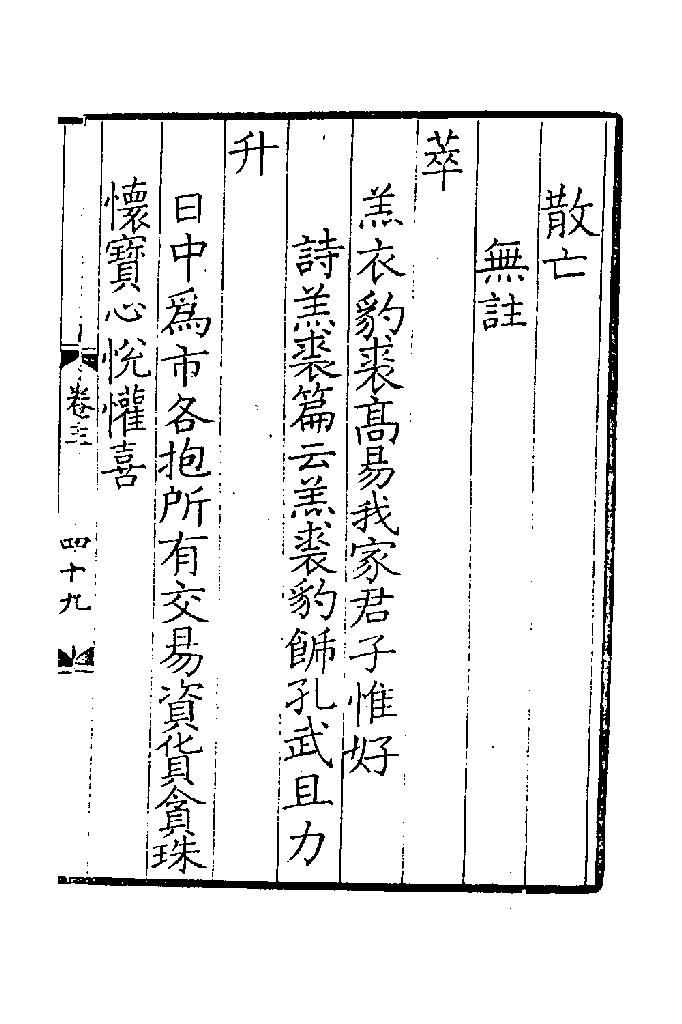 散亡
無註
萃
羔衣豹裘高易我家君子惟好
詩羔裘篇云羔裘豹飾孔武且力
升
日中爲市各抱所有交易資貨貪珠
懷寶心悅懽喜
卷三
四十九